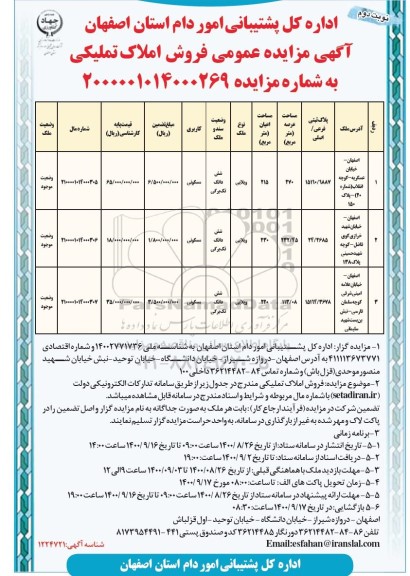 نوبت دوم
جهاد
اداره کل پشتیبانی امور دام استان اصفهان
آگهی مزایده عمومی فروش املاک تملیکی
به شماره مزایده ۲۰۰۰۰۰۱۰۱۴۰۰۰۲۶۹
ردیف	آدرس ملک	پلاک ثبتی فرعی / اصلی	مساحت عرصه (متر مربع)	مساحت اعیان (متر مربع)	نوع ملک	وضعیت سند و ملک	کاربری	مبلغ تضمین (ریال)	قیمت پایه کارشناسی (ریال)	شماره مال	وضعیت ملک
۱	اصفهان - خیابان عسکریه - کوچه انقلاب (شماره ۴۰) - پلاک ۱۵۰	۱۵۱۹۰/۱۸۸۷	۴۷۰	۲۱۵	ویلایی	شش دانگ تک برگی	مسکونی	۶/۵۰۰/۰۰۰/۰۰۰	۶۵/۰۰۰/۰۰۰/۰۰۰	۴۱۰۰۰۰۱۰۱۴۰۰۰۳۰۵	وضعیت موجود
۲	ویلایی	شش دانگ تک برگی	مسکونی	۱/۸۰۰/۰۰۰/۰۰۰	۱۸/۰۰۰/۰۰۰/۰۰۰	وضعیت موجود
۳	ویلایی	شش دانگ تک برگی	مسکونی	۳۵/۰۰۰/۰۰۰/۰۰۰	وضعیت موجود
۱- مزایده گزار: اداره کل پشتیبانی امور دام استان اصفهان به شناسه ملی ۱۴۰۰۲۷۷۱۷۳۶ و شماره اقتصادی
۴۱۱۱۱۳۶۷۳۷۷۱ به آدرس اصفهان - دروازه شیراز - خیابان دانشگاه - خیابان توحید - نبش خیابان شهید
منصور موحدی (قزل باش) و شماره تماس ۸۴-۳۶۲۱۴۴۸۲ داخلی ۱۰۰
۲- موضوع مزایده: فروش املاک تملیکی مندرج در جدول زیر از طریق سامانه تدارکات الکترونیکی دولت
(setadiran.ir) با شماره مال مربوطه و شرایط و اسناد مندرج در سامانه قابل مشاهده میباشد.
تضمین شرکت در مزایده (فرآیند ارجاع کار): بابت هر ملک به صورت جداگانه به نام مزایده گزار و اصل تضمین را در
پاکت لاک و مهر شده به غیر از بارگذاری در سامانه، به واحد حراست مزایده گزار تسلیم نمایند.
۳- برنامه زمانی
۵-۱- تاریخ انتشار در سامانه ستاد: از تاریخ ۱۴۰۰/۸/۲۶ ساعت ۰۹:۰۰ تا تاریخ ۱۴۰۰/۹/۱۶ ساعت ۱۴:۰۰
۵-۲- دریافت اسناد از سامانه ستاد: تا تاریخ ۱۴۰۰/۹/۲ ساعت ۱۹:۰۰
۵-۳- مهلت بازدید ملک با هماهنگی قبلی: از تاریخ ۱۴۰۰/۰۸/۲۶ تا ۱۴۰۰/۰۹/۰۳ ساعت ۹ الی ۱۲
۵-۴- زمان تحویل پاکت های الف: تا ساعت ۰۸:۰۰ مورخ ۱۴۰۰/۹/۱۷
۵-۵- مهلت ارائه پیشنهاد در سامانه ستاد از تاریخ ۱۴۰۰/۸/۲۶ ساعت ۰۹:۰۰ تا تاریخ ۱۴۰۰/۹/۱۶ ساعت ۱۹:۰۰
۵-۶ بازگشایی: در تاریخ ۱۴۰۰/۹/۱۷ ساعت ۰۸:۳۰
اصفهان - دروازه شیراز - خیابان دانشگاه - خیابان توحید - اول قزلباش
تلفن ۸۶-۸۴-۳۶۲۱۴۴۸۲ دورنگار ۳۶۲۱۴۴۸۵ کد و صندوق پستی ۴۴۱-۸۱۷۳۹۵۴۴۹۱
Email:esfahan@iranslal.com
شناسه آگهی: ۱۲۲۴۷۲۱
اداره کل پشتیبانی امور دام استان اصفهان